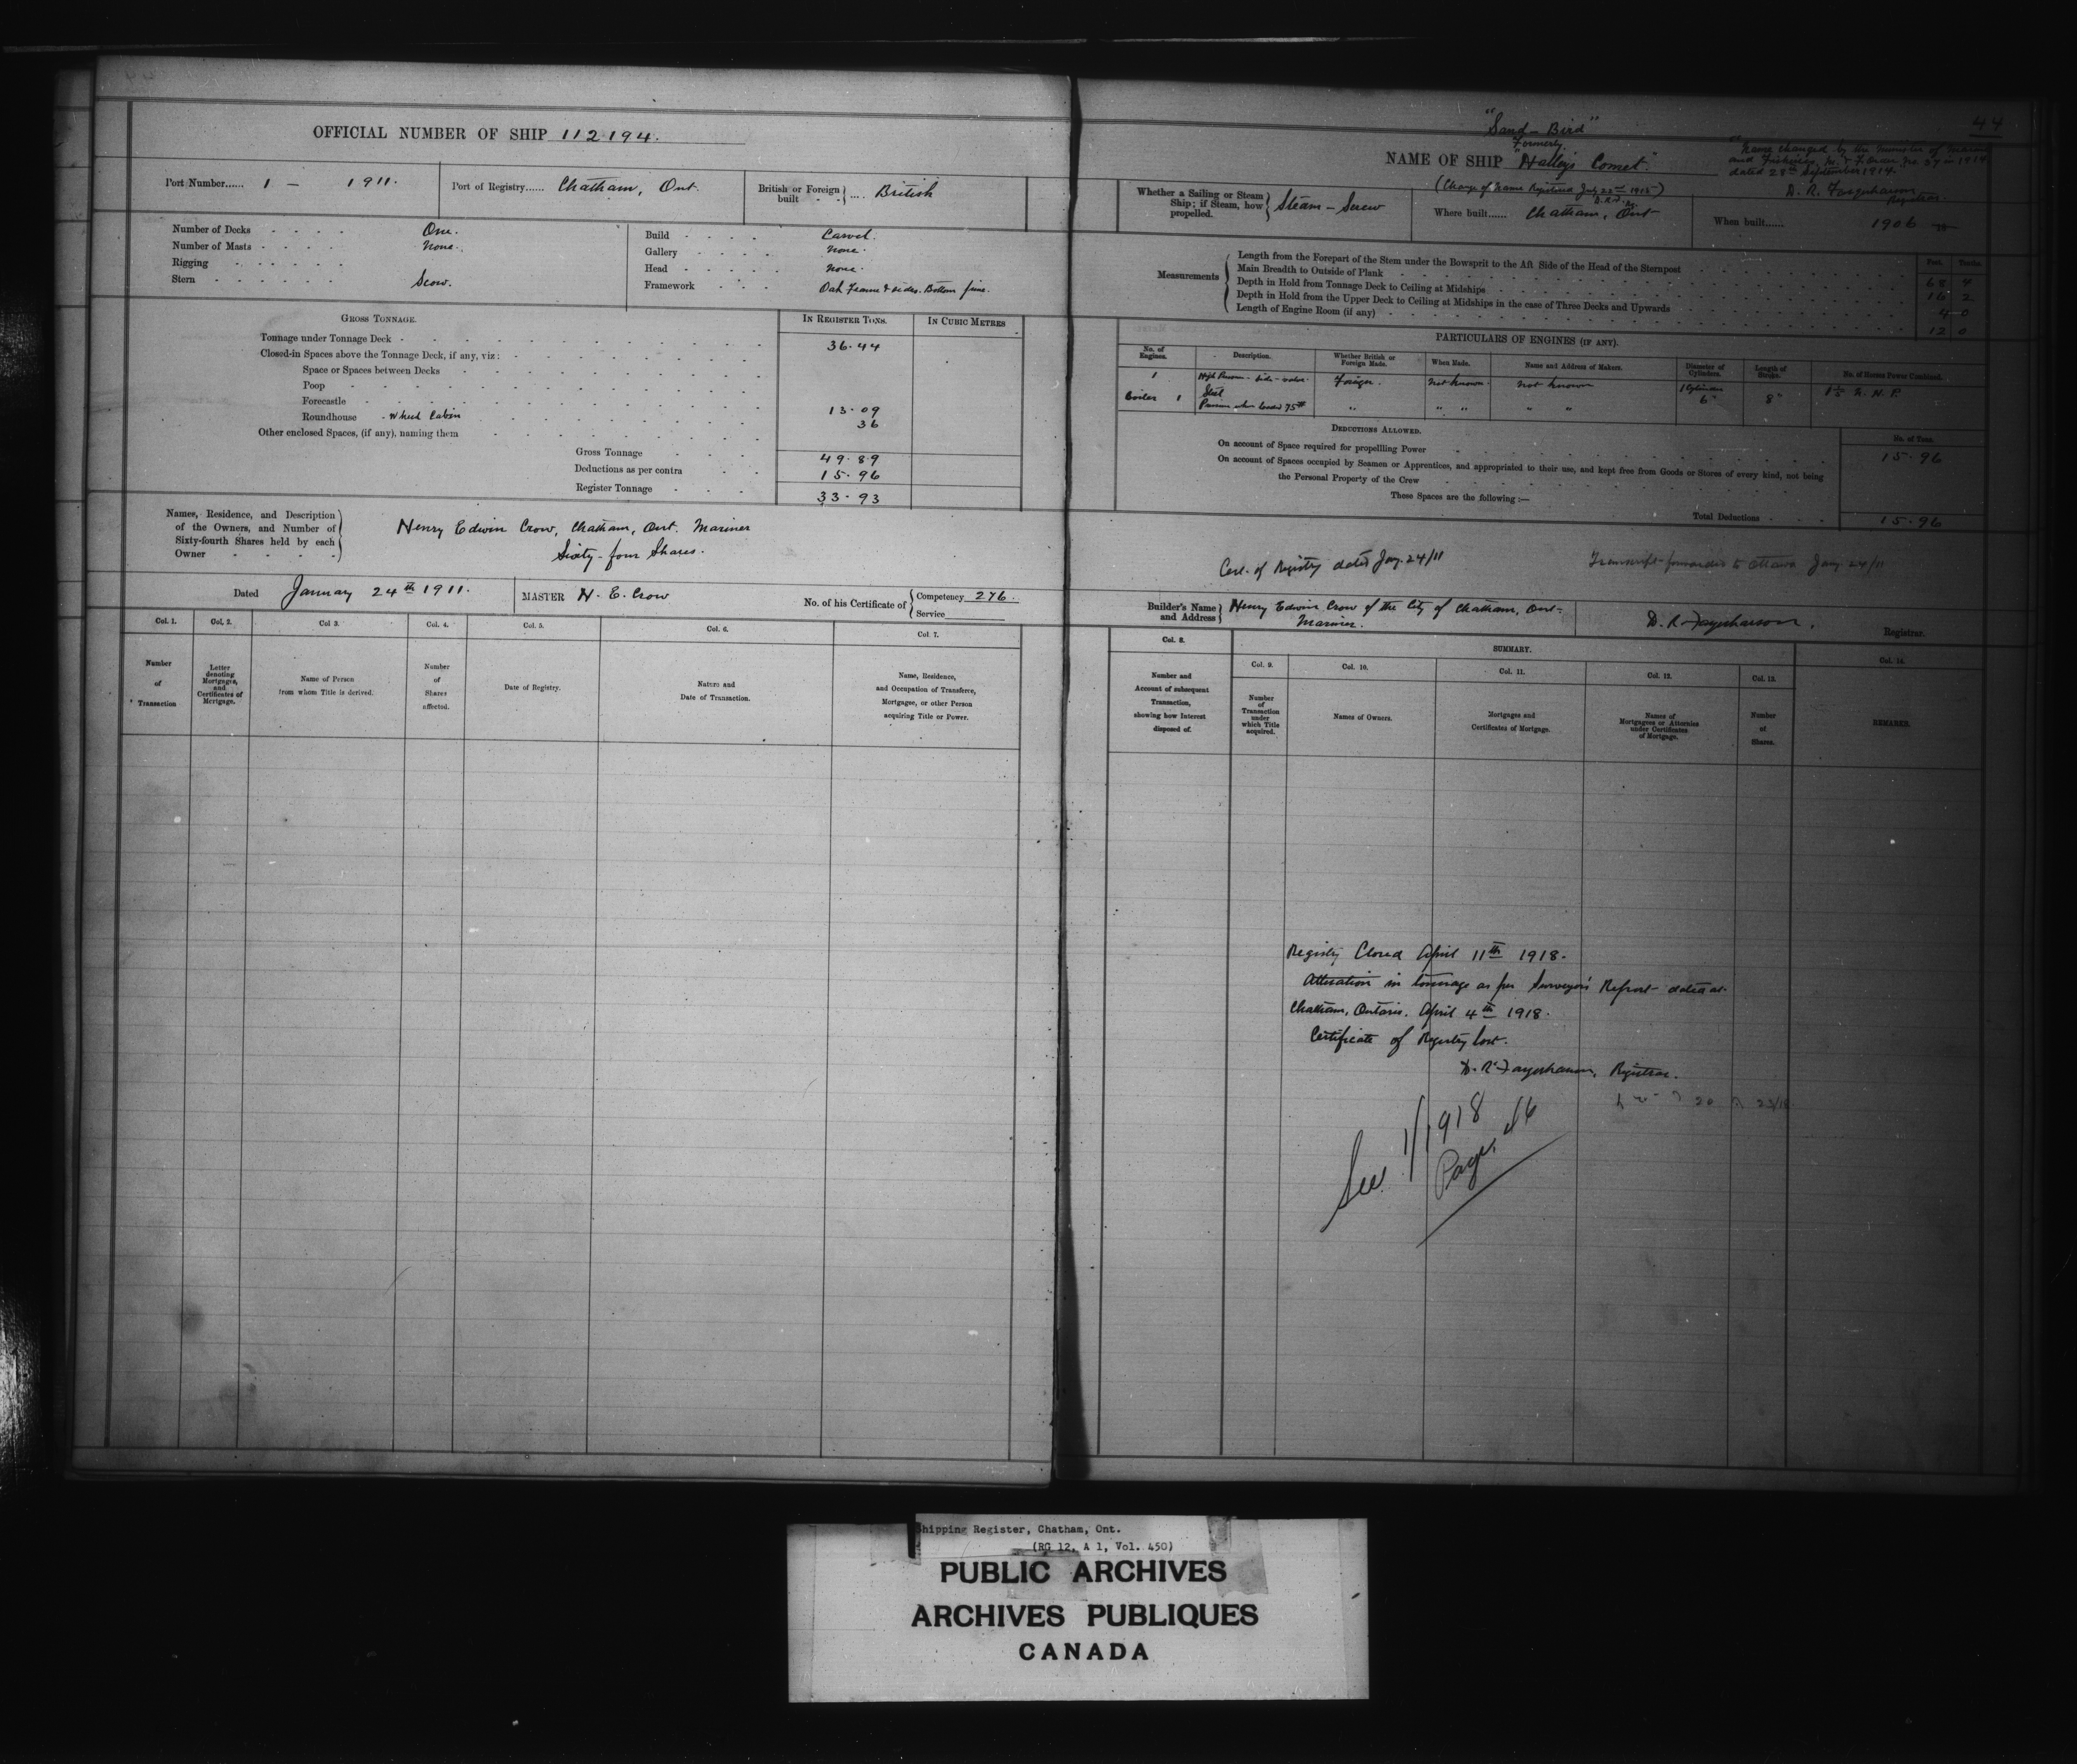 OFFICIAL NUMBER OF SHIP 112194.
Port Number...... 1 – 1911.
Port of Registry...... Chatham, Ont.
British or Foreign built .... British
Number of Decks One.
Number of Masts None.
Rigging
Stern Scow.
Build Carvel.
Gallery None.
Head None.
Framework Oak Frame & sides. Bottom pine.
GROSS TONNAGE.
IN REGISTER TONS.
IN CUBIC METRES
Tonnage under Tonnage Deck 36.44
Closed-in Spaces above the Tonnage Deck, if any, viz:
Space or Spaces between Decks
Poop
Forecastle
Roundhouse - Wheel Cabin 13.09
Other enclosed Spaces, (if any), naming them 36
Gross Tonnage 49.89
Deductions as per contra 15.96
Register Tonnage 33.93
Names, Residence, and Description of the Owners, and Number of Sixty-fourth Shares held by each Owner
Henry Edwin Crow, Chatham, Ont. Mariner
Sixty-four Shares.
Dated January 24th 1911.
MASTER H. E. Crow
No. of his Certificate of Competency 276.
Service
Col. 1.
Col. 2.
Col 3.
Col. 4.
Col. 5.
Col. 6.
Col. 7.
Number of Transaction
Letter denoting Mortgages, and Certificates of Mortgage.
Name of Person from whom Title is derived.
Number of Shares affected.
Date of Registry.
Nature and Date of Transaction.
Name, Residence, and Occupation of Transferee, Mortgagee, or other Person acquiring Title or Power.
44
"Sand-Bird"
Formerly
NAME OF SHIP "Halley's Comet"
(Change of Name Registered July 22nd 1915)
D.R.F.
Name changed by the Minister of Marine
and Fisheries, M. & F. dated
dated 28th September 1914.
D. R. Farquharson
Registrar.
Whether a Sailing or Steam Ship; if Steam, how propelled. Steam – Screw
Where built...... Chatham, Ont
When built...... 1906
Measurements
Feet. Tenths.
Length from the Forepart of the Stem under the Bowsprit to the Aft Side of the Head of the Sternpost 68 4
Main Breadth to Outside of Plank 16 2
Depth in Hold from Tonnage Deck to Ceiling at Midships 4 0
Depth in Hold from the Upper Deck to Ceiling at Midships in the case of Three Decks and Upwards
Length of Engine Room (if any) 12 0
PARTICULARS OF ENGINES (IF ANY).
No. of Engines.
Description.
Whether British or Foreign Made.
When Made.
Name and Address of Makers.
Diameter of Cylinders.
Length of Stroke.
No. of Horses Power Combined.
1 High Pressure - side-valve. Foreign. Not known. Not known 1 Cylinder 6" 8" N. H. P.
Boiler 1 Steel
Pressure when loaded 75# " " " " "
DEDUCTIONS ALLOWED.
No. of Tons.
On account of Space required for propelling Power 15.96
On account of Spaces occupied by Seamen or Apprentices, and appropriated to their use, and kept free from Goods or Stores of every kind, not being
the Personal Property of the Crew
These Spaces are the following :—
Total Deductions 15.96
Cert. of Registry dated Jany. 24/11
Transcript forwarded to Ottawa Jany 24/11
Builder's Name and Address Henry Edwin Crow of the City of Chatham, Ont-
Mariner.
D. R. Farquharson.
Registrar.
Col. 8.
SUMMARY.
Col. 9.
Col. 10.
Col. 11.
Col. 12.
Col. 13.
Col. 14.
Number and Account of subsequent Transaction, showing how Interest disposed of.
Number of Transaction under which Title acquired.
Names of Owners.
Mortgages and Certificates of Mortgage.
Names of Mortgagees or Attornies under Certificates of Mortgage.
Number of Shares.
REMARKS.
Registry Closed April 11th 1918.
Alteration in tonnage as per Surveyor's Report dated at
Chatham, Ontario. April 4th 1918.
Certificate of Registry lost.
D. R. Farquharson, Registrar.
See 1/1918
Page
Shipping Register, Chatham, Ont.
(RG 12, A 1, Vol. 450)
PUBLIC ARCHIVES
ARCHIVES PUBLIQUES
CANADA